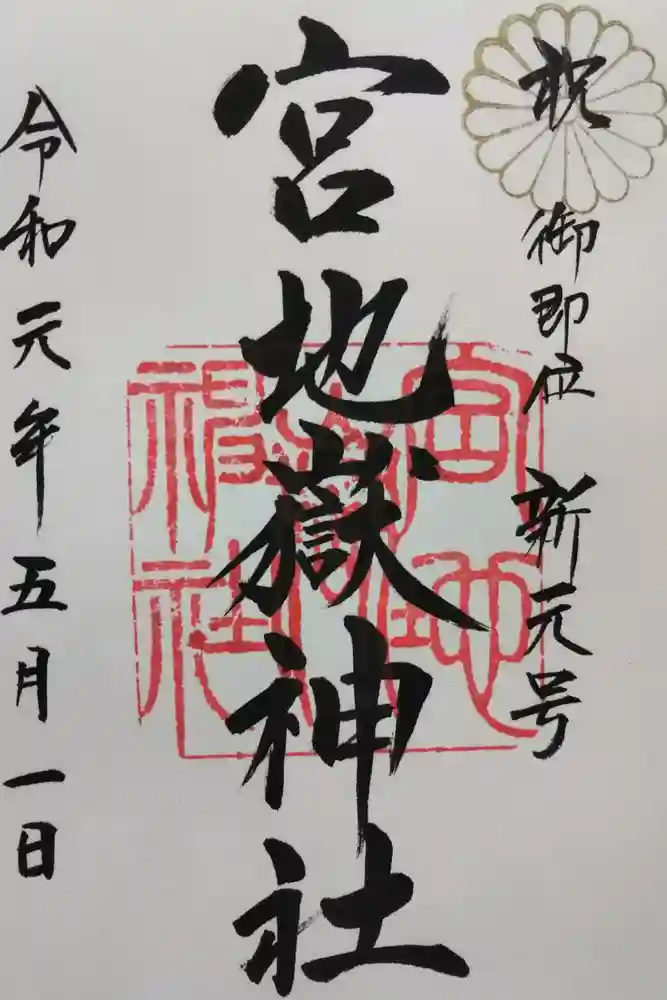 祝 御即位 新元号
宮地嶽神社
宮地嶽神社
令和元年五月一日